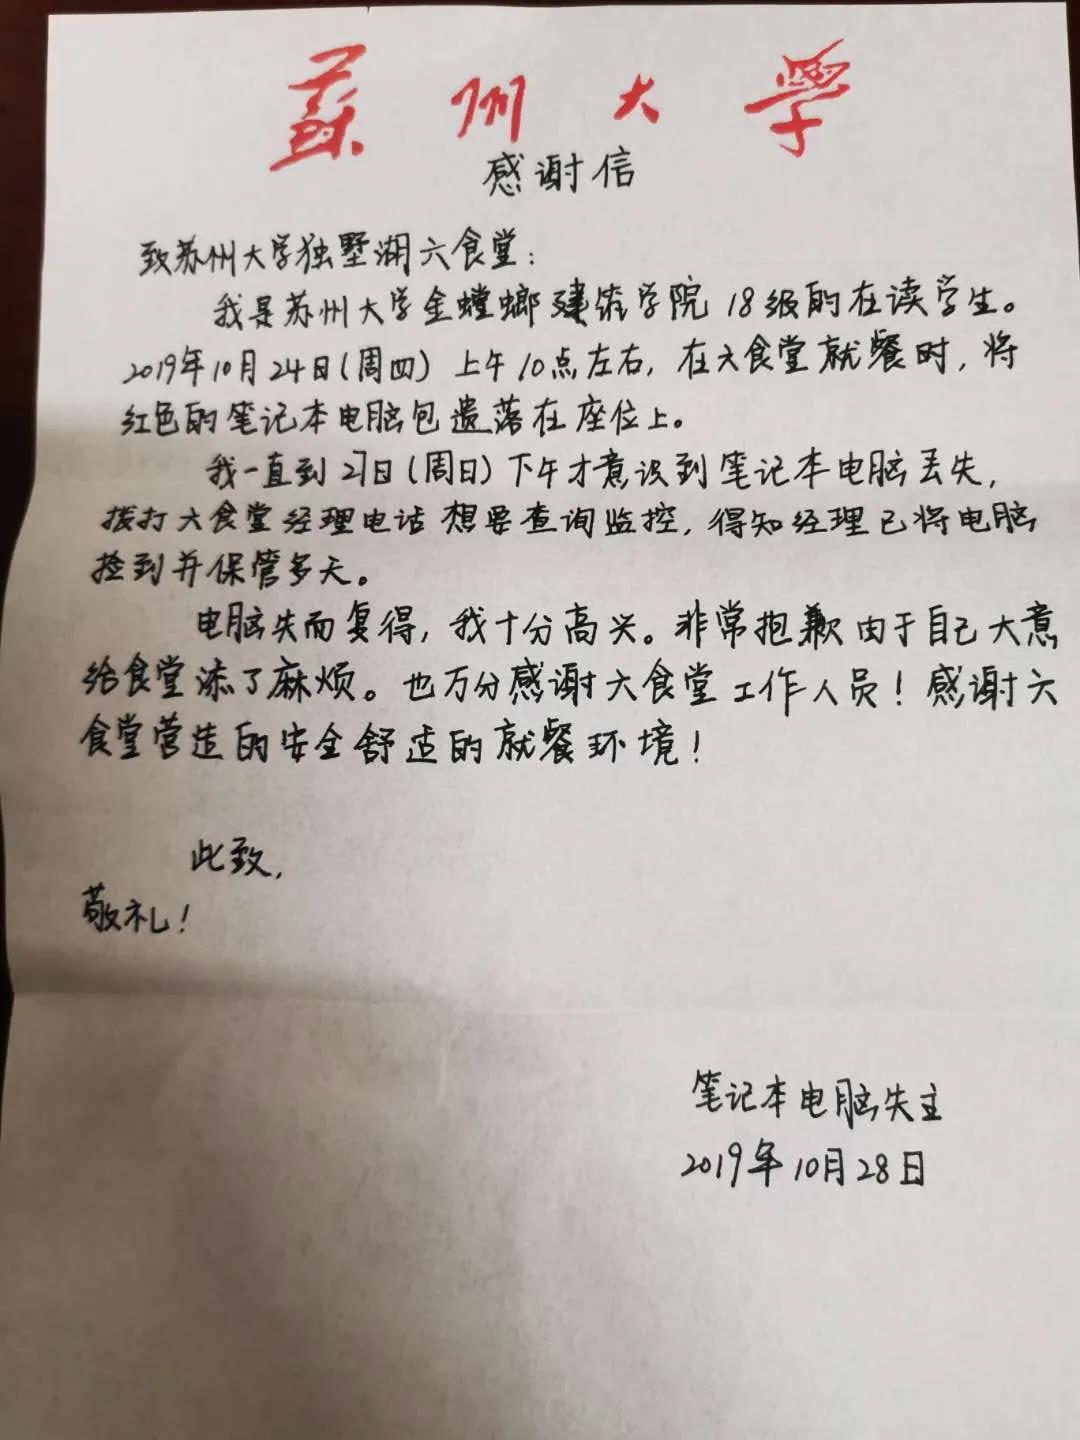 蘇州大學
感谢信
致苏州大学独墅湖六食堂：
我是苏州大学金螳螂建筑学院18级的在读学生。
2019年10月24日(周四)上午10点左右,在六食堂就餐时,将
红色的笔记本电脑包遗落在座位上。
我一直到27日(周日)下午才意识到笔记本电脑丢失,
拨打六食堂经理电话想要查询监控,得知经理已将电脑
捡到并保管多天。
电脑失而复得,我十分高兴。非常抱歉由于自己大意
给食堂添了麻烦。也万分感谢六食堂工作人员!感谢六
食堂营造的安全舒适的就餐环境!
此致,
敬礼!
笔记本电脑失主
2019年10月28日